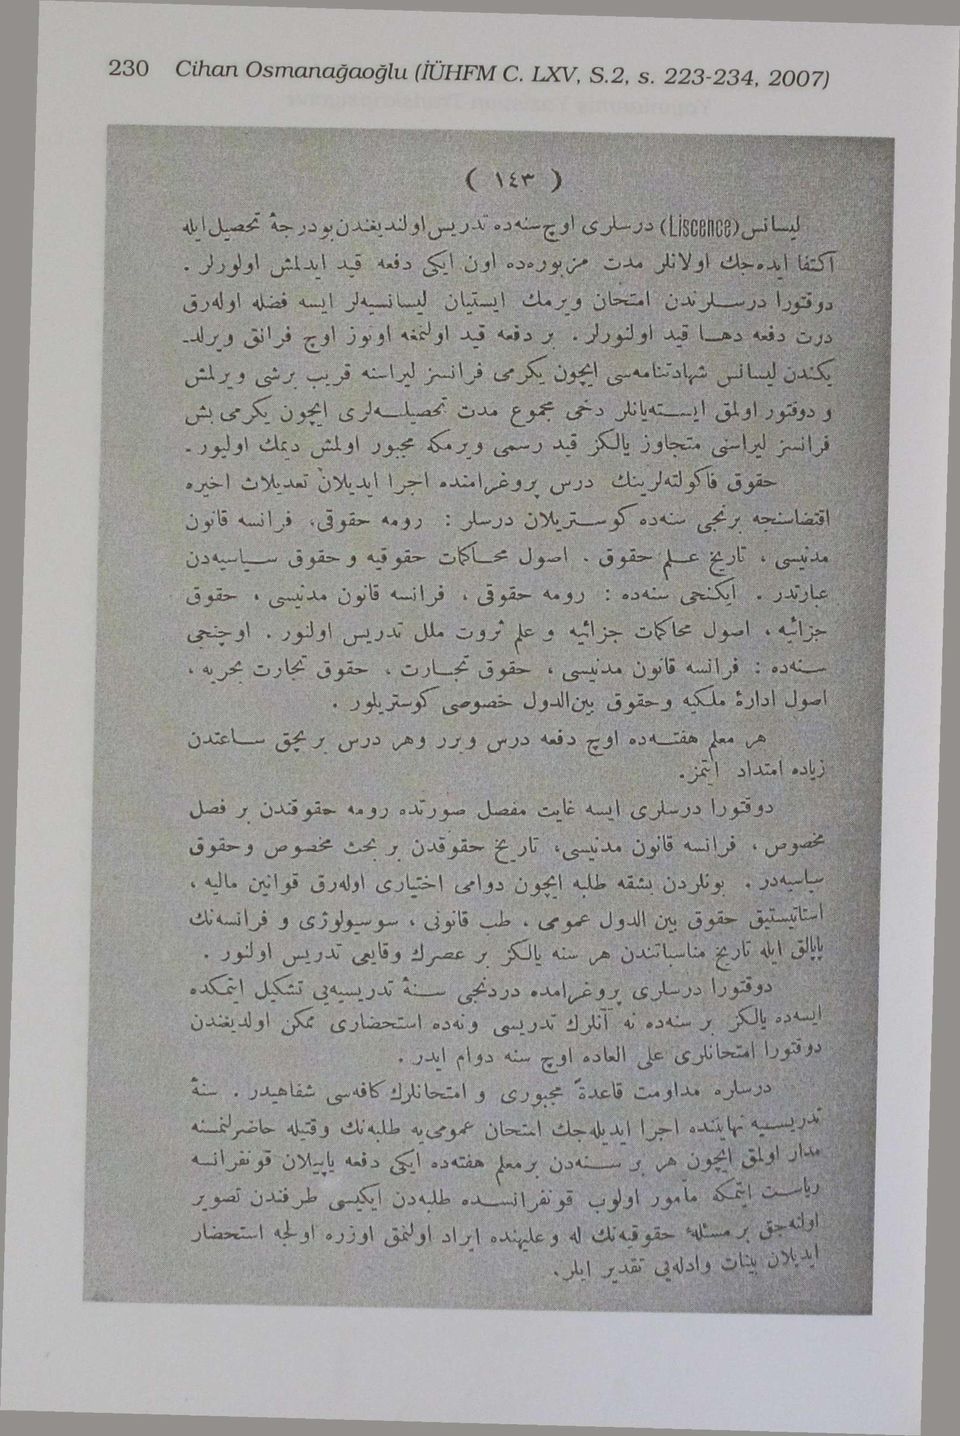 230 Cihan Osmanağaoğlu (İÜHFM C. LXV, S.2, s. 223-234, 2007)
( ١٤٣ )
ليسانس (Liscence) درسلرى اوچ سنه‌ده تدريس اولنديغندن بو درجهٔ تحصيل ايله
اكتفا ايده‌جك اولانلر مدت مزبوره‌ده اون ايكى دفعه قيد ايدلمش اولورلر .
دوقتورا درسلرندن امتحان ويرمك ايستيان ليسانسيه‌لر ايسه فضله اوله‌رق
درت دفعه دها قيد اولنورلر . بر دفعه قيد اولنمغه اوتوز اوچ فرانق ويرلد-
يكندن ليسانس شهادتنامه‌سى ايچون يكرمى فرانسز ليراسنه قريب برشى ويرلمش
و دوقتور اولمق ايسته‌يانلر دخى مجموع مدت تحصيله‌لرى ايچون يكرمى بش
فرانسز ليراسنى متجاوز يالكز قيد رسمى ويرمكه مجبور اولمش ديمك اوليور .
حقوق فاكولته‌لرينك درس پروغرامنده اجرا ايديلان تعديلات اخيره
اقتضاسنجه برنجى سنه‌ده كوستريلان درسلر : رومه حقوقى ، فرانسه قانون
مدنيسى ، تاريخ علم حقوق . اصول محاكمات حقوقيه و حقوق سياسيه‌دن
عبارتدر . ايكنجى سنه‌ده : رومه حقوقى ، فرانسه قانون مدنيسى ، حقوق
جزائيه ، اصول محاكمات جزائيه و علم ثروت ملل تدريس اولنور . اوچنجى
سنه‌ده : فرانسه قانون مدنيسى ، حقوق تجارت ، حقوق تجارت بحريه ،
اصول ادارهٔ ملكيه وحقوق بين‌الدول خصوصى كوستريلور .
هر معلم هفته‌ده اوچ دفعه درس ويرر وهر درس بر بچق ساعتدن
زياده امتداد ايتمز .
دوقتورا درسلرى ايسه غايت مفصل صورتده رومه حقوقندن بر فصل
مخصوص ، فرانسه قانون مدنيسى ، تاريخ حقوقدن بر بحث مخصوص وحقوق
سياسيه‌در . بونلردن بشقه طلبه ايچون دوامى اختيارى اوله‌رق قوانين ماليه ،
استاتيستيق حقوق بين الدول عمومى ، طب قانونى ، سوسيولوژى و فرانسه‌نك
پاپالق ايله تاريخ مناسباتندن هر سنه يالكز بر عصرك وقايعى تدريس اولنور .
دوقتورا درسلرى پروغرامده دردنجى سنهٔ تدريسيه‌يى تشكيل ايتمكده
ايسه‌ده يالكز بر سنه‌ده نه آنلرك تدريسى ونه‌ده استحضارى ممكن اولديغندن
دوقتورا امتحانلرى على العاده اوچ سنه دوام ايدر .
درسلره مداومت قاعدةً مجبورى و امتحانلرك كافه‌سى شفاهيدر . سنهٔ
تدريسيه نهايتنده اجرا ايديله‌جك امتحان عمومى‌يه طلبه‌نك وقتيله حاضرلنمسنه
مدار اولمق ايچون هر بر سنه‌دن برمعلم هفته‌ده ايكى دفعه ياپيلان قونفرانسه
رياست ايتمكه مأمور اولوب قونفرانسده طلبه‌دن ايكيسى طرفندن تصوير
اولنه‌جق بر مسئلهٔ حقوقيه‌نك له وعليهنده ايراد اولنمق اوزره اولجه استحضار
ايديلان بينات وادله‌يى تقدير ايلر .